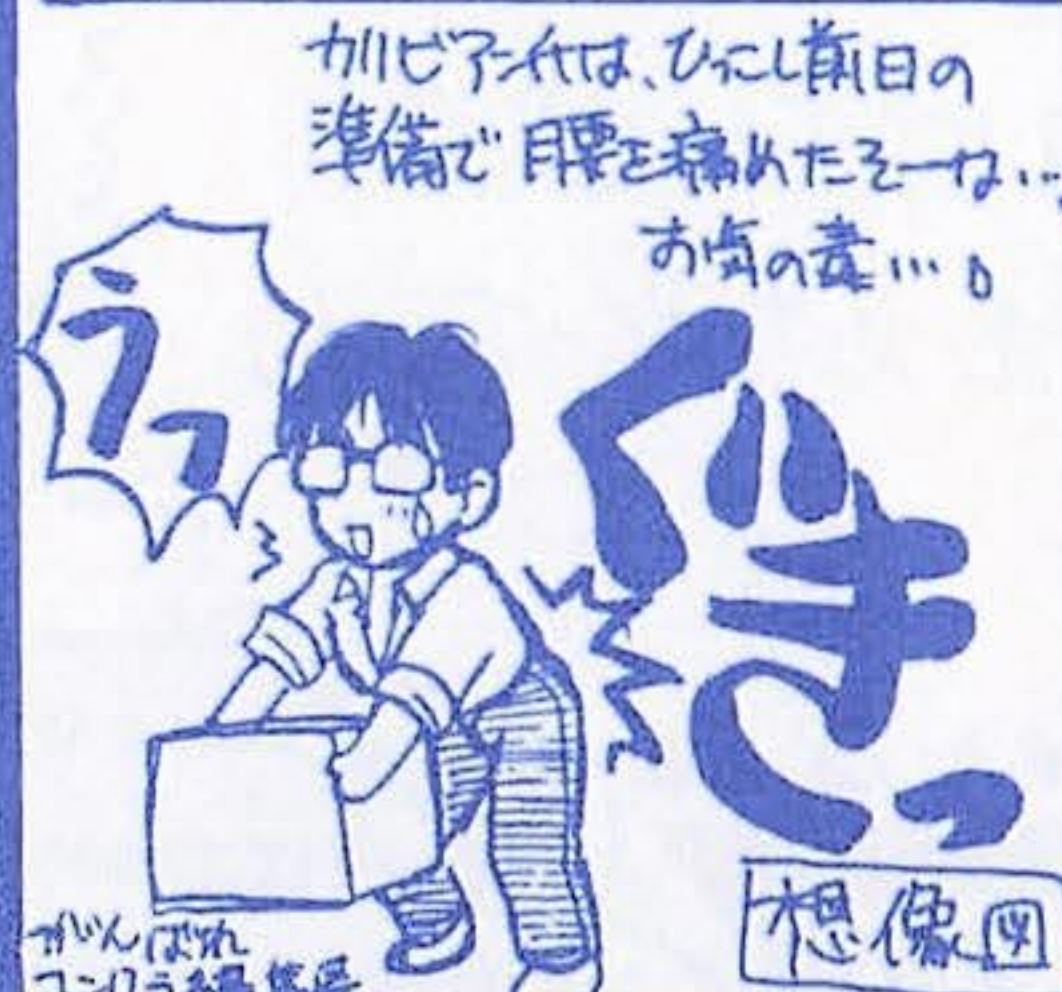 カリビアン代は、ひっこし前日の
準備で腰を痛めたそーな…
お気の毒…。
うっ
ぐきっ
想像図
がんばれ